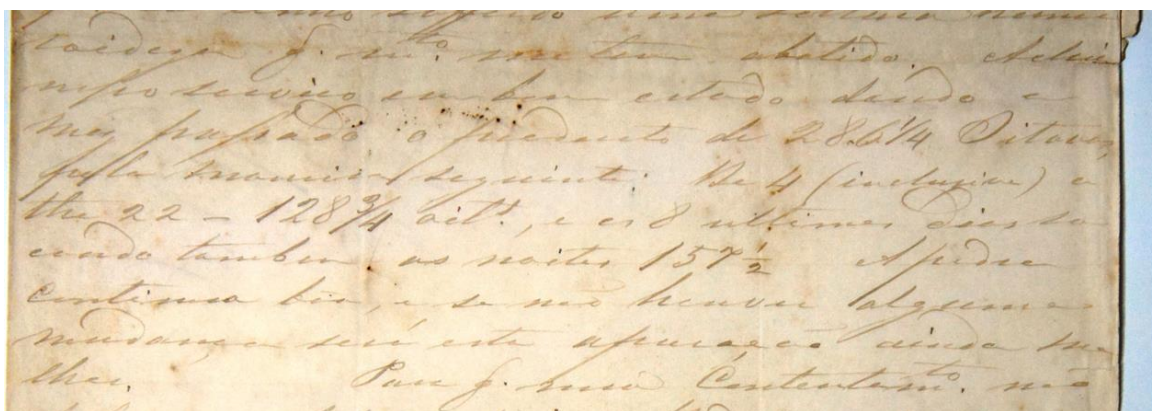 uma
q. m.to me tem abatido. Achei
nosso serviço em bom estado dando o
mez passado o producto de 286 1/4 Oitavas,
pela maneira seguinte: De 4 (inclusive) a
the 22 – 128 3/4 oit.s, e os 8 ultimos dias so
cando tambem as noites 157 1/2 A pedra
continua boa, e se não houver alguma
mudança será esta apuração ainda me
lhor. Para q. meu Contentam.to não